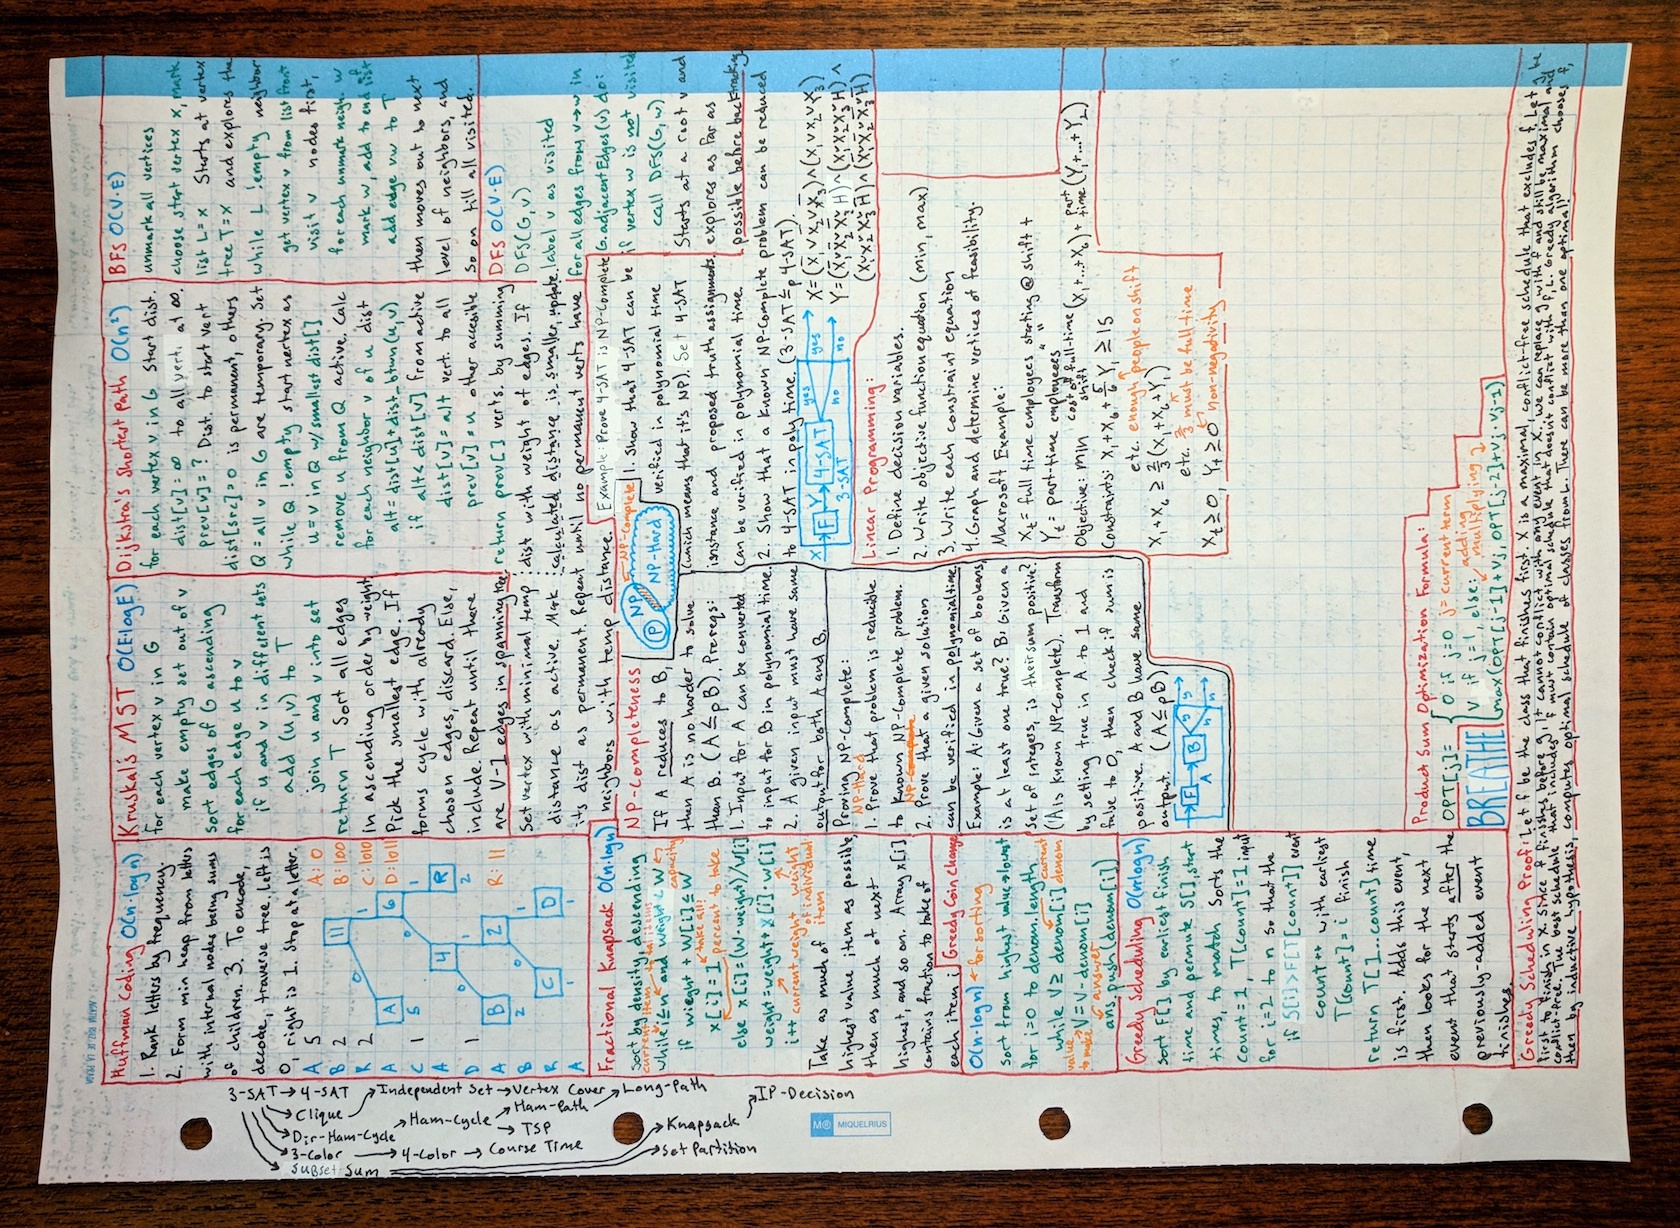 Huffman Coding O(n·logn)
1. Rank letters by frequency.
2. Form min heap from letters
with internal nodes being sums
of children. 3. To encode,
decode, traverse tree. Left is
0, right is 1. Stop at a letter.
A 5
B 2
R 2
C 1
D 1
A
B
R
A
C
A
D
A
B
R
A
A: 0
B: 100
C: 1010
D: 1011
R: 11
11
A
5
6
4
R
2
B
2
2
C
1
D
1
Fractional Knapsack O(n·logn)
Sort by density, descending
while i≤n and weight < W
capacity
if weight + W[i] ≤ W
take all!
x[i] = 1
percent to take
else x[i] = (W-weight)/W[i]
weight = weight + x[i]·w[i]
i++
current weight
weight of individual item
Take as much of
highest value item as possible,
then as much of next
highest, and so on. Array x[i]
contains fraction to take of
each item i.
Greedy Coin change
O(n·logn) for sorting
sort from highest value→lowest
for i=0 to denom.length
while V ≥ denom[i]
current denom
value to make
V = V - denom[i]
answer
ans.push(denom[i])
Greedy Scheduling O(nlogn)
sort F[] by earliest finish
time and permute S[], start
times, to match
Count=1, T[count]=1
for i=2 to n
if S[i] > F[T[count]]
count++
T[count] = i
return T[1...count]
Sorts the
input
so that the
event
with earliest
finish
time
is first. Adds this event,
then looks for the next
event that starts after the
previously-added event
finishes.
Kruskal's MST O(ElogE)
for each vertex v in G
make empty set out of v
sort edges of G ascending
for each edge u to v
if u and v in different sets
add (u,v) to T
join u and v into set
return T
Sort all edges
in ascending order by weight
Pick the smallest edge. If
forms cycle with already
chosen edges, discard. Else,
include. Repeat until there
are V-1 edges in spanning tree
Dijkstra's Shortest Path O(n²)
for each vertex v in G
Start dist.
dist[v] = ∞
to all verts at ∞.
prev[v] = ?
Dist. to start vert
dist[src] = 0
is permanent, others
Q = all v in G
are temporary. Set
while Q !empty
start vertex as
u = v in Q w/ smallest dist[]
remove u from Q
active. Calc
for each neighbor v of u
dist
alt = dist[u] + dist.btwn(u,v)
if alt < dist[v]
from active
dist[v] = alt
vert. to all
prev[v] = u
other accesible
return prev[]
verts. by summing
Set vertex with minimal temp
dist with weight of edges. If
distance as active. Mark
calculated distance is smaller, update.
its dist as permanent. Repeat until no permanent verts have
neighbors with temp distance.
BFS O(V·E)
unmark all vertices
choose start vertex x, mark
list L = x
tree T = x
Starts at vertex
and explores the
while L !empty
neighbor
get vertex v from list front
visit v
nodes first,
for each unmark neigh. w
mark w, add to end list
add edge vw to T
then moves out to next
level of neighbors, and
so on till all visited.
DFS O(V·E)
DFS(G,v)
label v as visited
for all edges from v→w in
G.adjacentEdges(v) do:
if vertex w is not visited
call DFS(G,w)
Starts at a root v and
explores as far as
possible before backtracking
NP-Completeness
NP
P
NP-Complete
NP-Hard
If A reduces to B,
then A is no harder to solve
than B. (A ≤p B). Prereqs:
1. Input for A can be converted
to input for B in polynomial time.
2. A given input must have same
output for both A and B.
Proving NP-Complete:
NP-Hard
1. Prove that problem is reducible
to Known NP-Complete problem.
2. Prove that a given solution
can be verified in polynomial time
Example: A: Given a set of booleans
is at least one true? B: Given a
set of integers, is their sum positive?
(A is known NP-Complete). Transform
by setting true in A to 1 and
false to 0, then check if sum is
positive. A and B have same
output. (A ≤p B)
F
B
A
y
n
y
n
Example: Prove 4-SAT is NP-Complete
1. Show that 4-SAT can be
verified in polynomial time
(which means that it's NP). Set 4-SAT
instance and proposed truth assignments.
Can be verified in polynomial time.
2. Show that a Known NP-Complete problem can be reduced
to 4-SAT in poly time. (3-SAT ≤p 4-SAT).
X
F
Y
4-SAT
3-SAT
yes
no
yes
no
Linear Programming:
1. Define decision variables.
2. Write objective function equation (min, max)
3. Write each constraint equation
4. Graph and determine vertices of feasibility.
Microsoft Example:
Xt = full time employees starting @ shift t
Yt = part-time employees " "
Objective: min
cost of full-time shift
(X1+...+X6) +
part time
(Y1+...+Y2)
Constraints: X1 + X6 + 5/6 Y1 ≥ 15
etc. enough people on shift
X1 + X6 ≥ 2/3 (X1 + X6 + Y1)
etc. 2/3 must be full-time
Xt ≥ 0, Yt ≥ 0
non-negativity
Product Sum Optimization Formula:
OPT[j] =
0 if j=0
j = current term
v, if j=1, else:
adding
multiplying
max(OPT[j-1] + vj, OPT[j-2] + vj · vj-1)
BREATHE
Greedy Scheduling Proof: Let f be the class that finishes first. X is a maximal, conflict-free schedule that excludes f. Let g be
first to finish in X. Since f finishes before g, it cannot conflict with any event in X, we can replace g with f and still be maximal and
conflict-free. The best schedule that includes f must contain optimal schedule that doesn't conflict with f, L. Greedy algorithm chooses f,
then by inductive hypothesis, computes optimal schedule of classes from L. There can be more than one optimal!
3-SAT → 4-SAT
Clique → Independent Set → Vertex Cover → Long-Path
Dir-Ham-Cycle → Ham-Cycle → Ham-Path
TSP
3-Color → 4-Color → Course Time
Subset Sum
Knapsack
IP-Decision
Set Partition
MIQUELRIUS